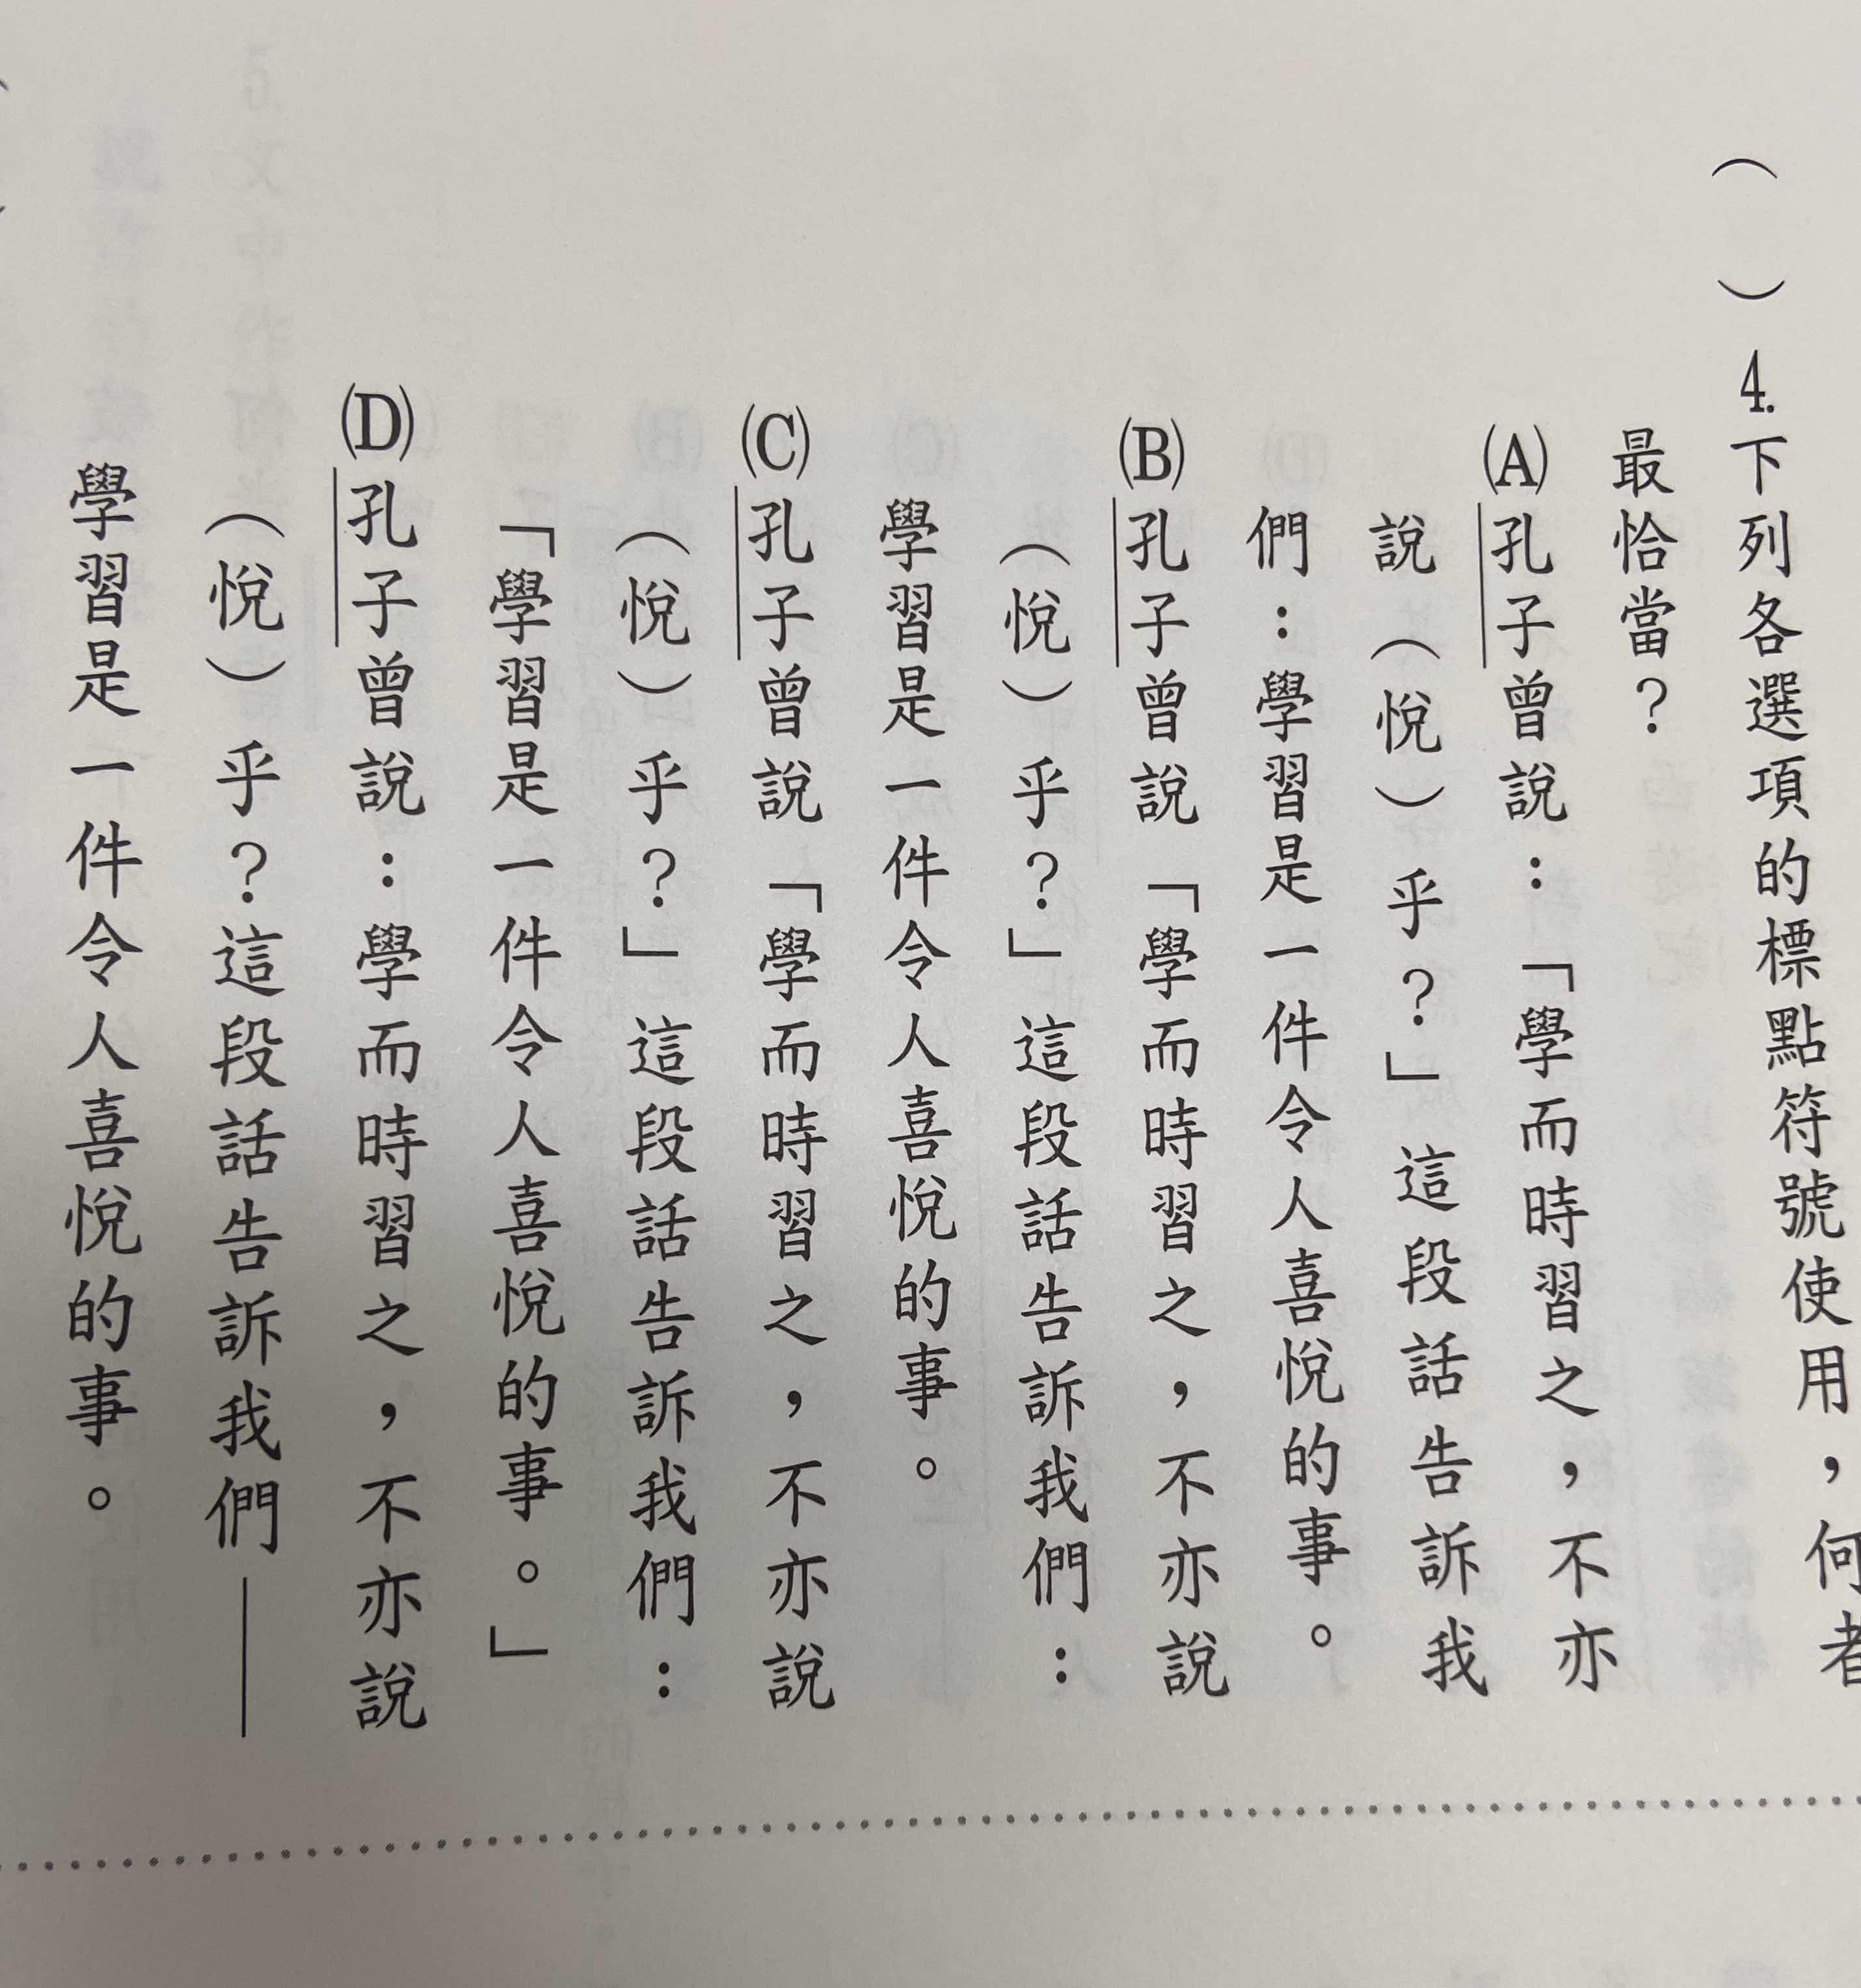 （　）4.下列各選項的標點符號使用，何者
最恰當？
(A)孔子曾說：「學而時習之，不亦
說（悅）乎？」這段話告訴我
們：學習是一件令人喜悅的事。
(B)孔子曾說「學而時習之，不亦說
（悅）乎？」這段話告訴我們：
學習是一件令人喜悅的事。
(C)孔子曾說「學而時習之，不亦說
（悅）乎？」這段話告訴我們：
「學習是一件令人喜悅的事。」
(D)孔子曾說：學而時習之，不亦說
（悅）乎？這段話告訴我們——
學習是一件令人喜悅的事。